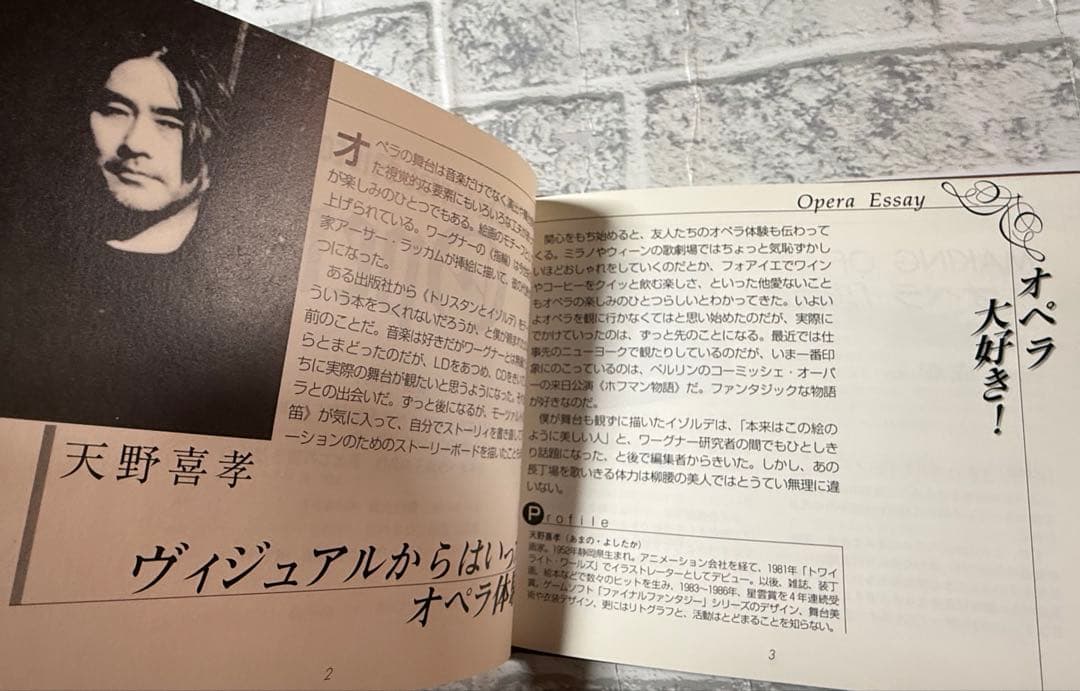 オペラの舞台は音楽だけでなく、
た視覚的な要素にもいろいろな
が楽しみのひとつでもある。絵画のモチーフと
上げられている。ワーグナーの〈指輪〉は
家アーサー・ラッカムが挿絵に描いて、
つになった。
ある出版社から〈トリスタンとイゾルデ〉を
ういう本をつくれないだろうか、と僕が頼まれた
前のことだ。音楽は好きだがワーグナーとは
らとまどったのだが、LDをあつめ、CDをきいて
ちに実際の舞台が観たいと思うようになった。
ラとの出会いだ。ずっと後になるが、モーツァルト
笛〉が気に入って、自分でストーリィを書き直して
ーションのためのストーリーボードを描いたこと
天野喜孝
ヴィジュアルからはいっ
オペラ体
2
Opera Essay
オペラ
大好き!
関心をもち始めると、友人たちのオペラ体験も伝わって
くる。ミラノやウィーンの歌劇場ではちょっと気恥ずかし
いほどおしゃれをしていくのだとか、フォアイエでワイン
やコーヒーをクイッと飲む楽しさ、といった他愛ないこと
もオペラの楽しみのひとつらしいとわかってきた。いよい
よオペラを観に行かなくてはと思い始めたのだが、実際に
でかけていったのは、ずっと先のことになる。最近では仕
事先のニューヨークで観たりしているのだが、いま一番印
象にのこっているのは、ベルリンのコーミッシェ・オーパ
ーの来日公演〈ホフマン物語〉だ。ファンタジックな物語
が好きなのだ。
僕が舞台も観ずに描いたイゾルデは、「本来はこの絵の
ように美しい人」と、ワーグナー研究者の間でもひとしき
り話題になった、と後で編集者からきいた。しかし、あの
長丁場を歌いきる体力は柳腰の美人ではとうてい無理に違
いない。
Profile
天野喜孝(あまの・よしたか)
画家。1952年静岡県生まれ。アニメーション会社を経て、1981年「トワイ
ライト・ワールズ」でイラストレーターとしてデビュー。以後、雑誌、装丁
画、絵本などで数々のヒットを生み、1983~1986年、星雲賞を4年連続受
賞。ゲームソフト「ファイナルファンタジー」シリーズのデザイン、舞台美
術や衣装デザイン、更にはリトグラフと、活動はとどまることを知らない。
3